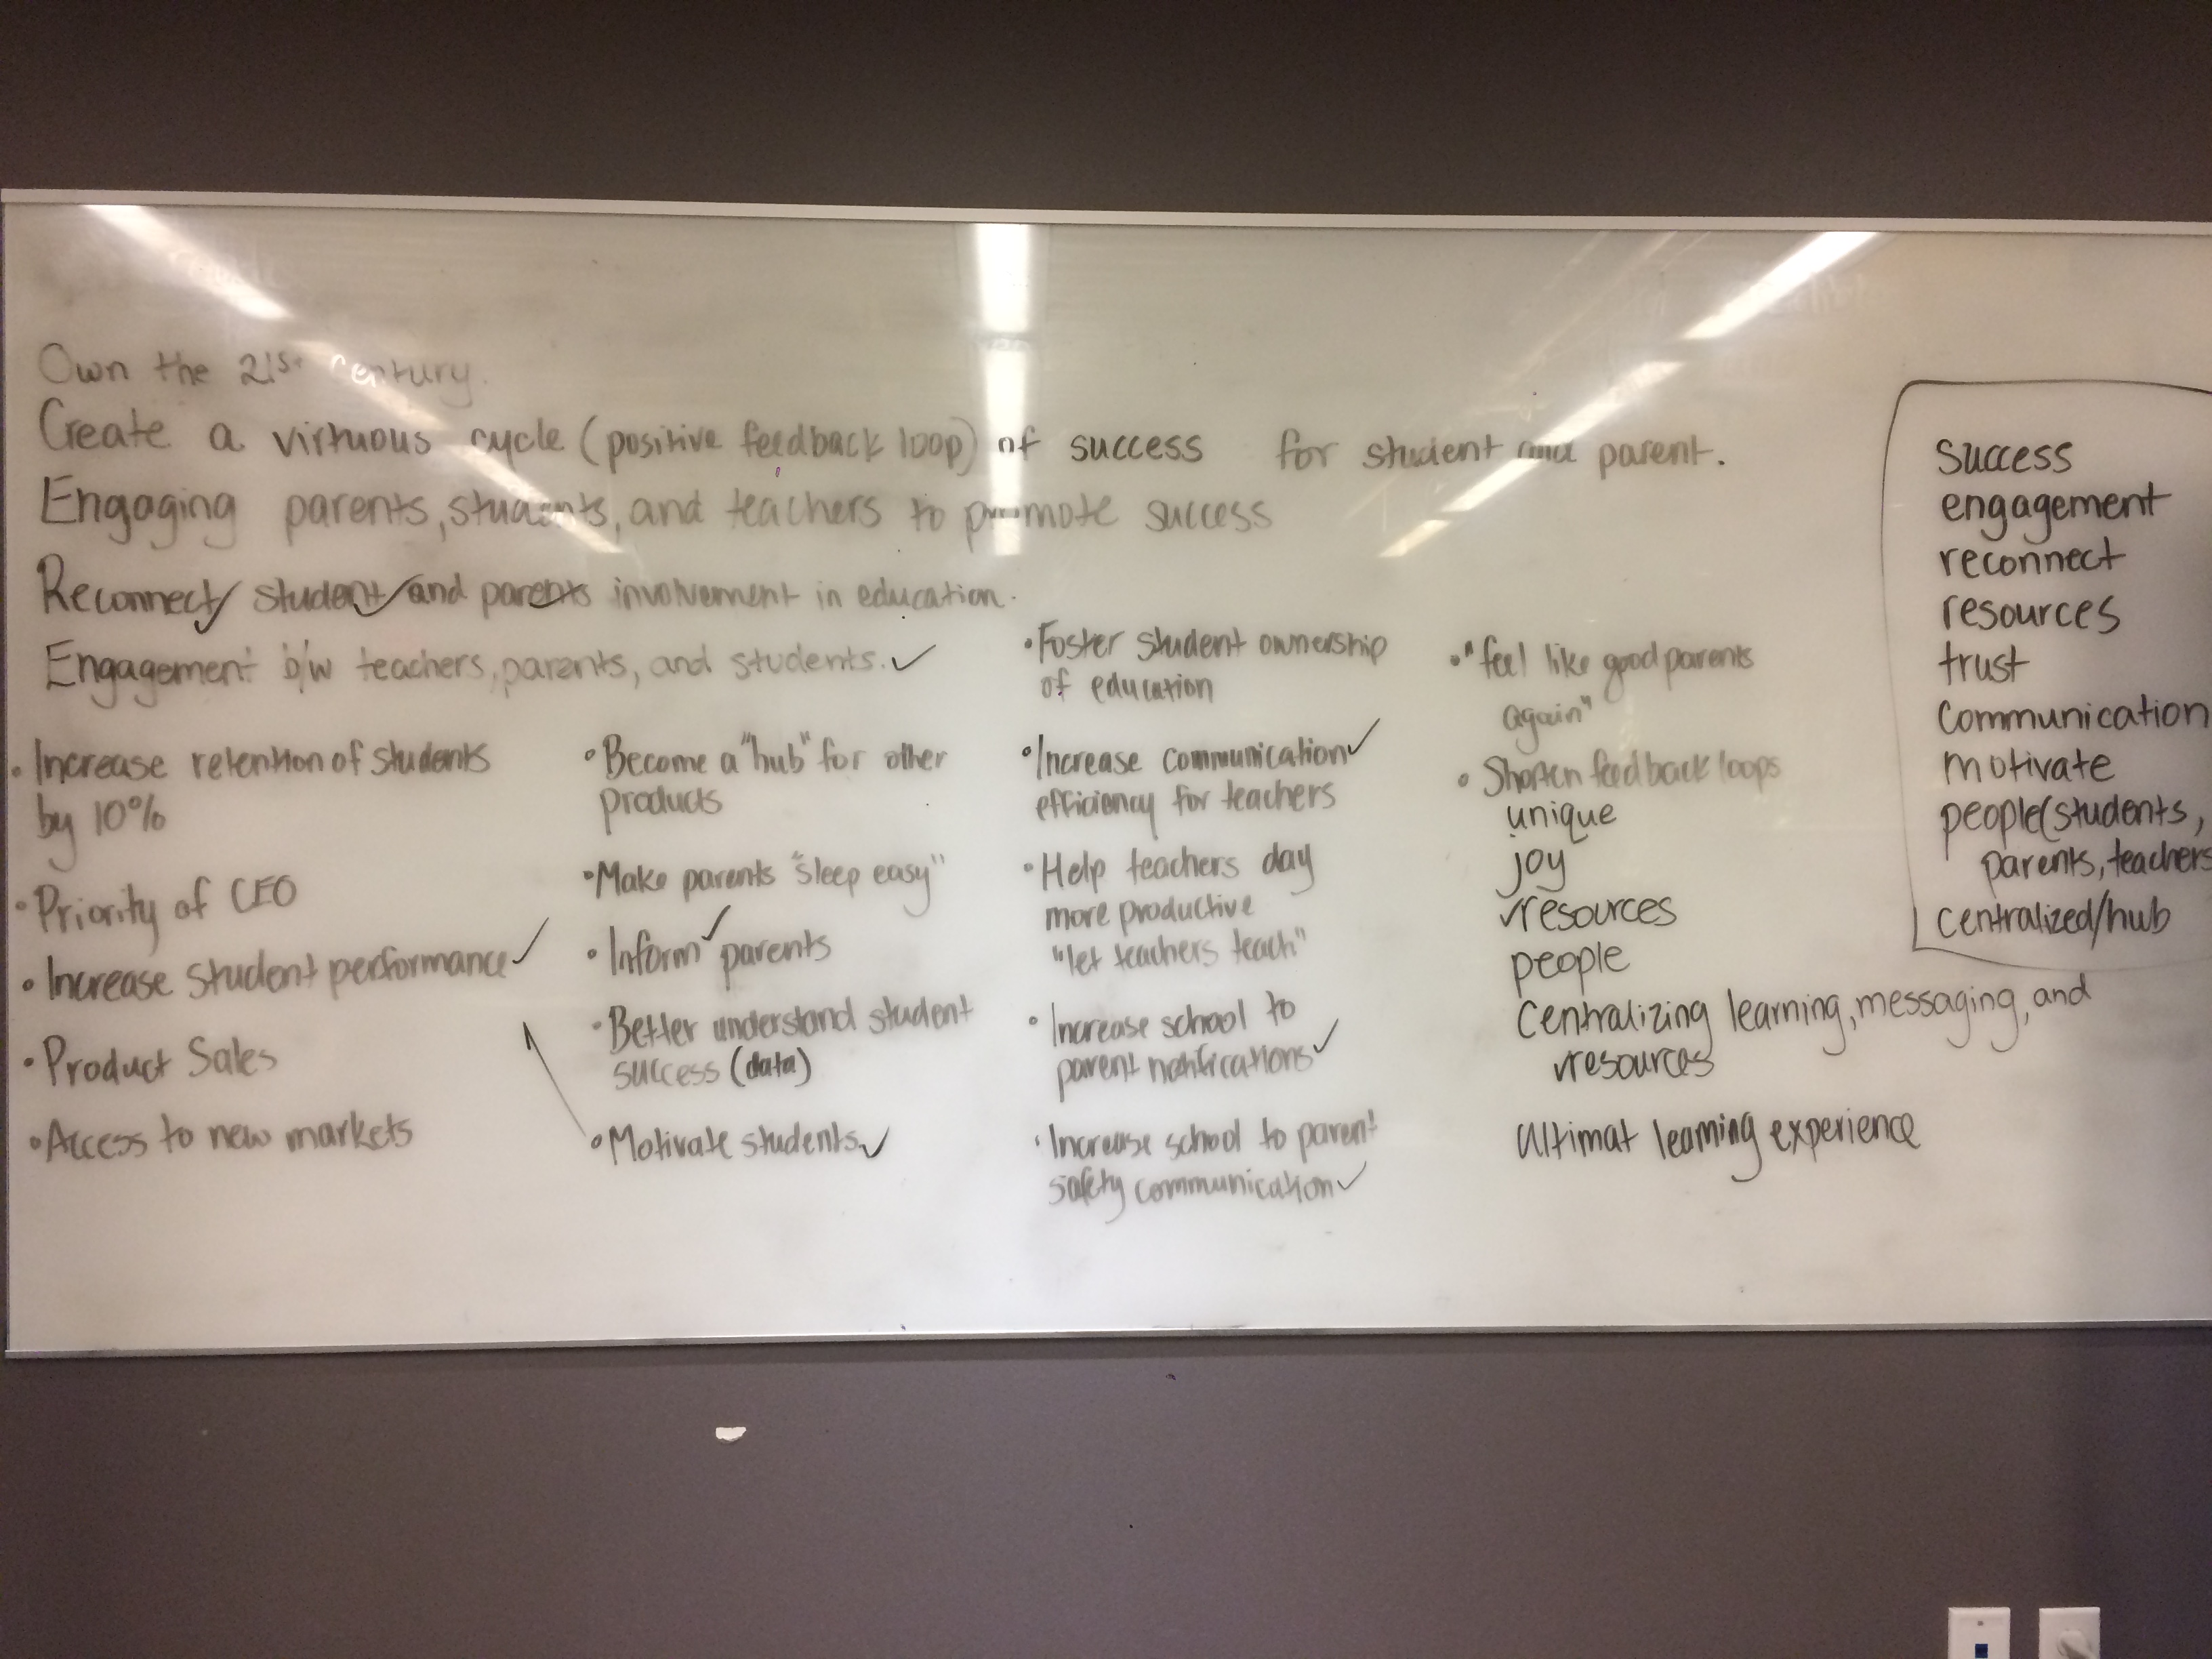 Own the 21st Century.
Create a virtuous cycle (positive feedback loop) of success for student and parent.
Engaging parents, students, and teachers to promote success
Reconnect student and parents involvement in education.
Engagement b/w teachers, parents, and students. ✓
• Increase retention of students
by 10%
• Priority of CEO
• Increase student performance ✓
• Product Sales
• Access to new markets
• Become a "hub" for other
products
• Make parents "sleep easy"
• Inform ✓ parents
• Better understand student
success (data)
• Motivate students ✓
• Foster student ownership
of education
• Increase communication ✓
efficiency for teachers
• Help teachers day
more productive
"let teachers teach"
• Increase school to
parent notifications ✓
• Increase school to parent
safety communication ✓
• "feel like good parents
again"
• Shorten feedback loops
unique
joy
✓resources
people
Centralizing learning, messaging, and
✓resources
Ultimat learning experience
success
engagement
reconnect
resources
trust
Communication
motivate
people(students,
parents, teachers
Centralized/hub